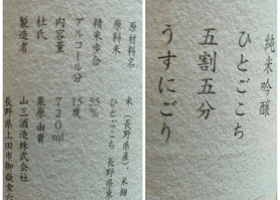 純米吟醸
ひとごこち
五割五分
うすにごり
原材料名 米(長野県産)、米麹
原料米 ひとごこち 長野県東
精米歩合 55%
アルコール分 15度
内容量 720ml
杜氏 栗原由貴
製造者 山三酒造株式会社
長野県上田市御嶽堂六